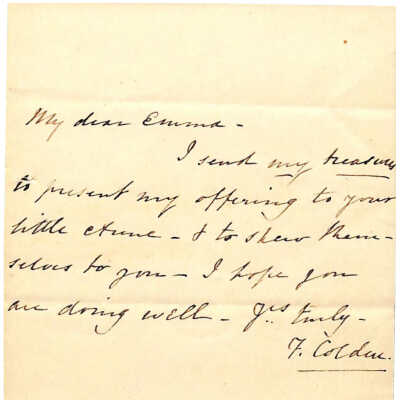 My dear Emma -
I send my treasures
to present my offering to your
little Anne - & to shew them-
selves to you - I hope you
are doing well - Yrs truly -
F. Colden.